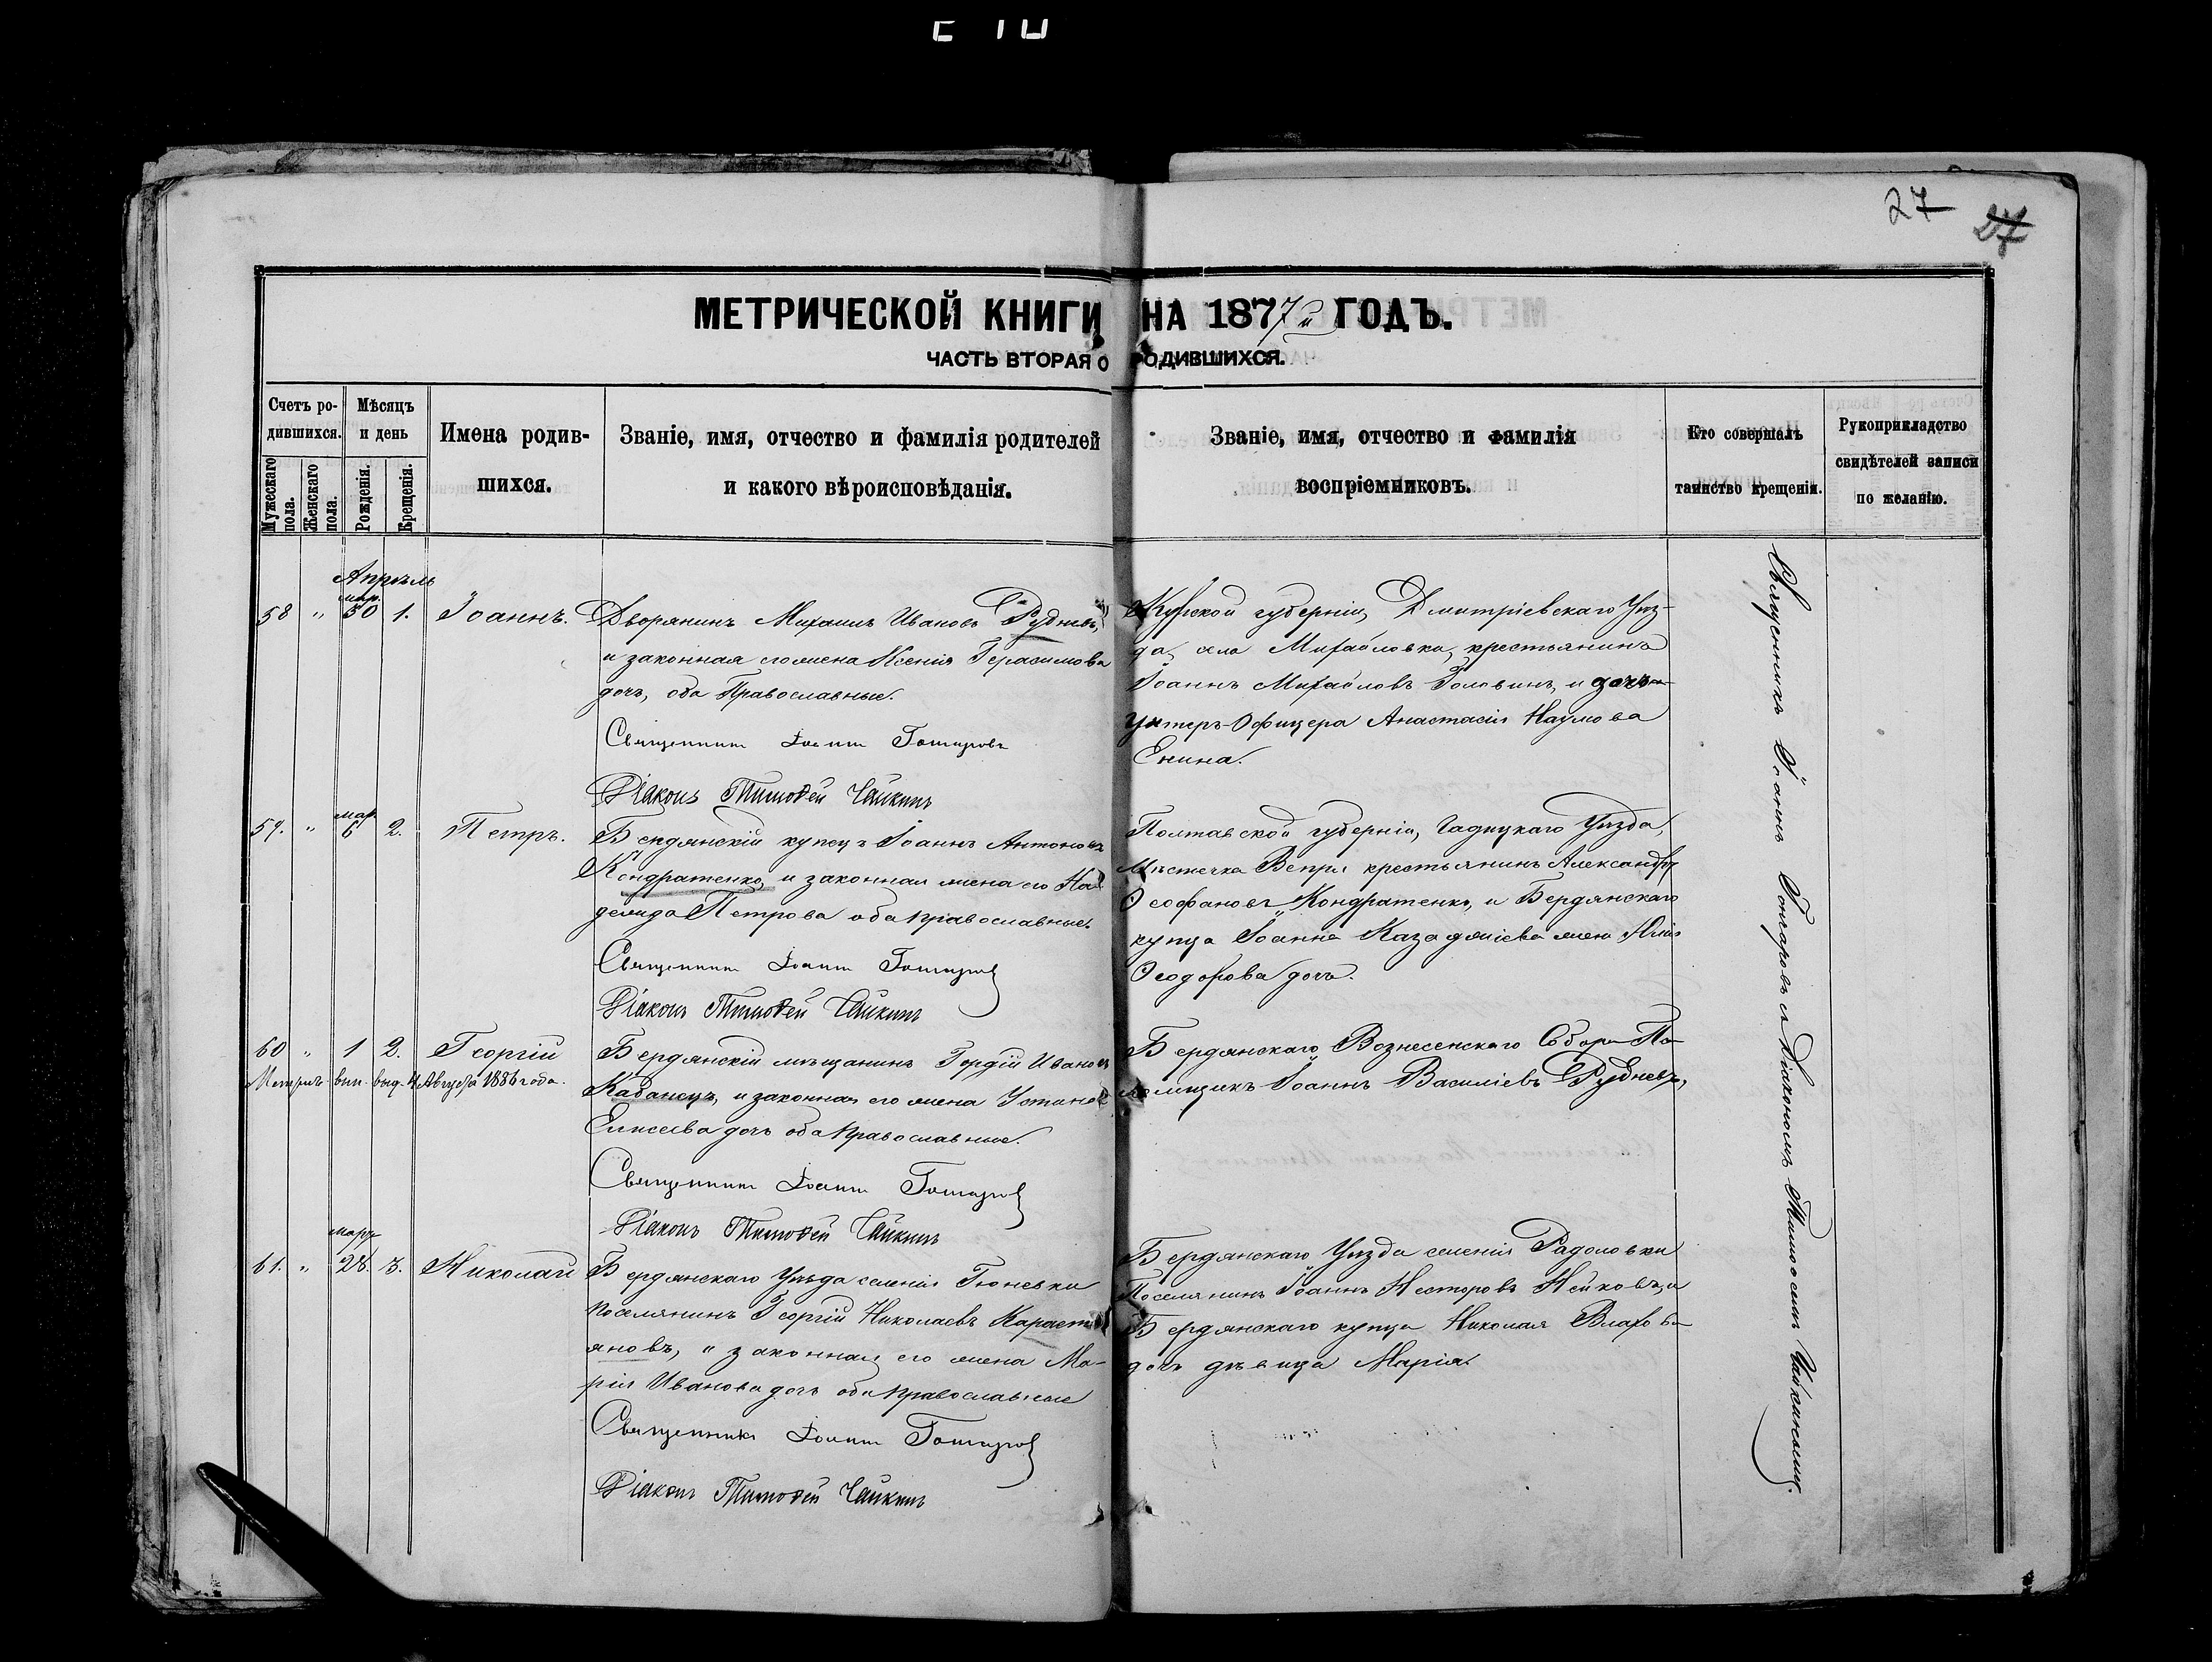 27 27
МЕТРИЧЕСКОЙ КНИГИ НА 1877й ГОДЪ.
ЧАСТЬ ВТОРАЯ О РОДИВШИХСЯ.
Счетъ родившихся.
Мужескаго пола.
Женскаго пола.
Мѣсяцъ и день
Рожденія.
Крещенія.
Имена родив-
шихся.
Званіе, имя, отчество и фамилія родителей
и какого вѣроисповѣданія.
Званіе, имя, отчество и фамилія
воспріемниковъ.
Кто совершалъ
таинство крещенія.
Рукоприкладство
свидѣтелей записи
по желанію.
Апрѣль
мар.
58 " 30 1. Іоаннъ.
Дворянинъ Михаилъ Ивановъ Рудневъ,
и законная его жена Ксенія Герасимова
дочь, оба Православные.
Священникъ Іоаннъ Гончаровъ
Діаконъ Тимоѳей Чайкинъ
Курской губерніи, Дмитріевскаго Уѣз-
да, села Михайловки, крестьянинъ
Іоаннъ Михайловъ Головинъ, и дочь
Унтеръ-Офицера Анастасія Наумова
Енина.
мар.
59. " 6 2. Петръ.
Бердянскій купецъ Іоаннъ Антоновъ
Кондратенко, и законная жена его На-
дежда Петрова оба православные.
Священникъ Іоаннъ Гончаровъ
Діаконъ Тимоѳей Чайкинъ
Полтавской губерніи, Гадяцкаго Уѣзда,
Мѣстечка Вепря крестьянинъ Александръ
Ѳеофановъ Кондратенко, и Бердянскаго
купца Іоанна жена Юлія
Ѳеодорова дочь.
60 " 1 2. Георгій
Метрич. вып. выд. 4 Августа 1886 года.
Бердянскій мѣщанинъ Гордій Ивановъ
Кабанецъ, и законная его жена Устинія
Елисеева дочь оба православные.
Священникъ Іоаннъ Гончаровъ
Діаконъ Тимоѳей Чайкинъ
Бердянскаго Вознесенскаго Собора Па-
ломщикъ Іоаннъ Василіевъ Рудневъ,
марта
61. " 28. 3. Николай
Бердянскаго Уѣзда селенія Гюневки
поселянинъ Георгій Николаевъ Караст-
яновъ, и законная его жена Ма-
рія Иванова дочь оба православные
Священникъ Іоаннъ Гончаровъ
Діаконъ Тимоѳей Чайкинъ
Бердянскаго Уѣзда селенія Радоловки
Поселянинъ Іоаннъ Несторовъ Нейковъ, и
Бердянскаго купца Николая Влахова
дочь дѣвица Марія.
Священникъ Іоаннъ Гончаровъ съ Діакономъ Тимоѳеемъ Чайкинымъ.